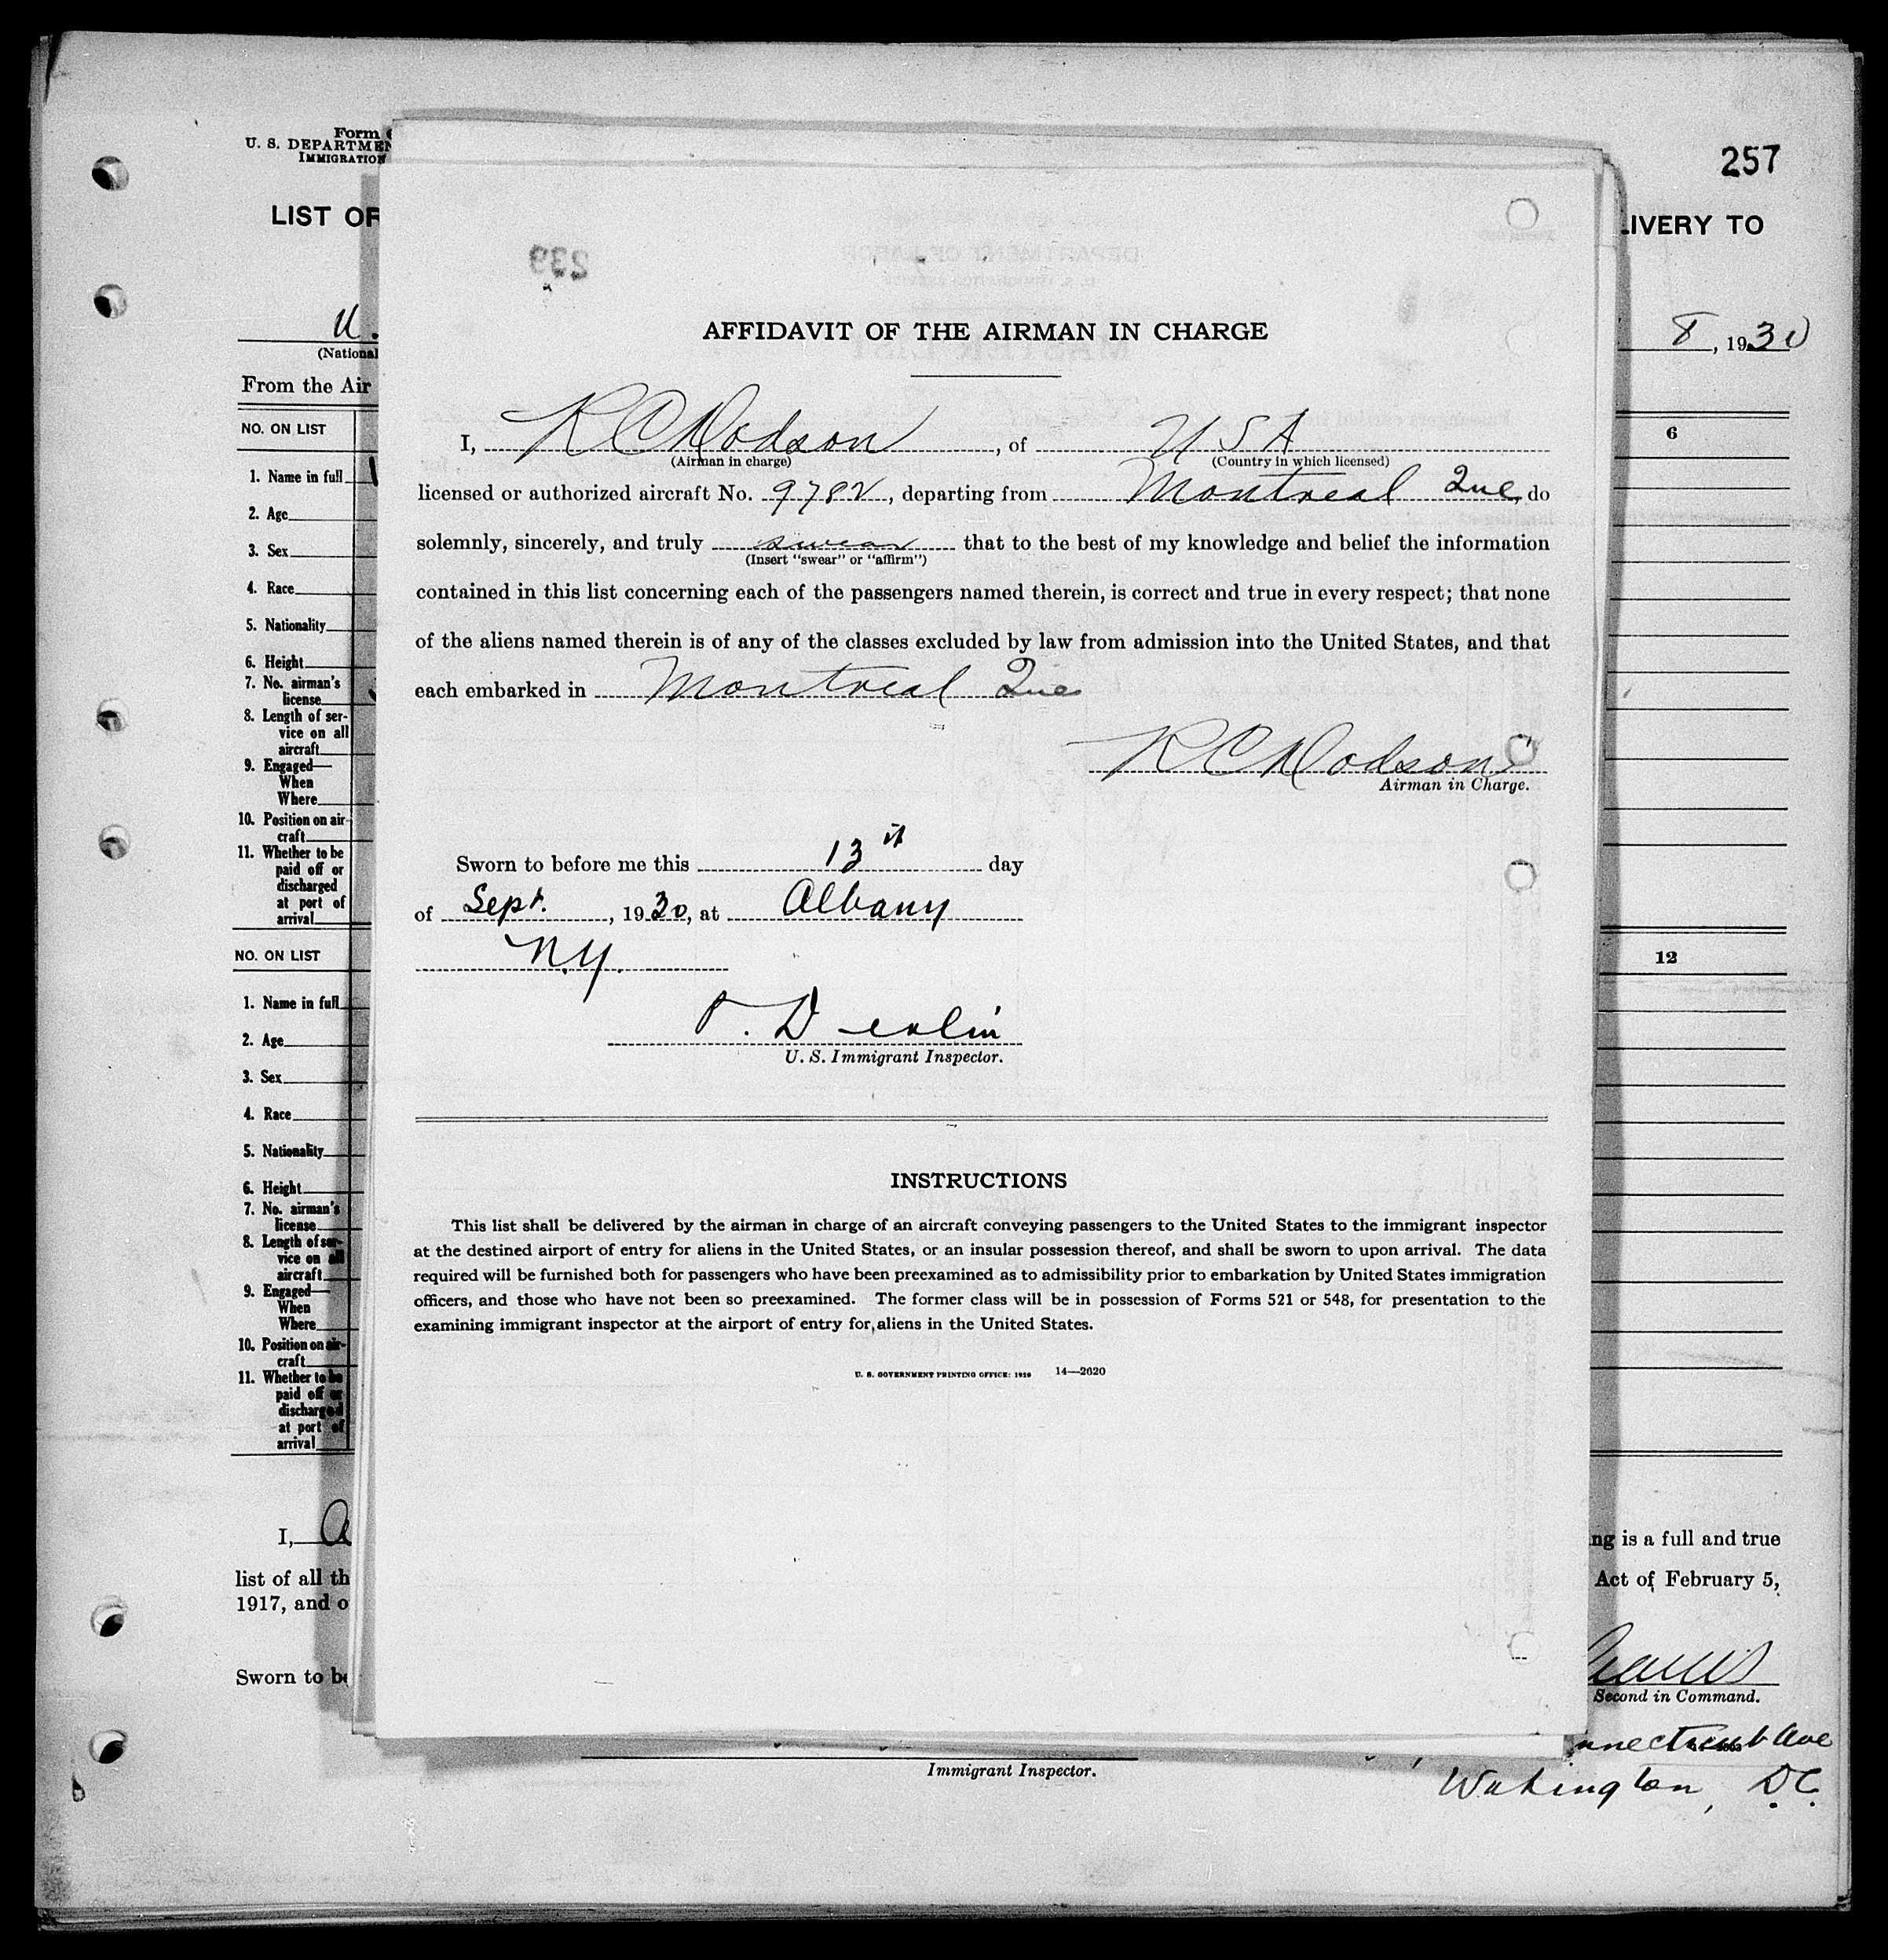 Form
U. S. DEPARTMEN
IMMIGRATION
257
LIST OF
LIVERY TO
U.
(National
8, 1930
From the Air
NO. ON LIST
6
1. Name in full
2. Age
3. Sex
4. Race
5. Nationality
6. Height
7. No. airman's
license
8. Length of ser-
vice on all
aircraft
9. Engaged—
When
Where
10. Position on air-
craft
11. Whether to be
paid off or
discharged
at port of
arrival
NO. ON LIST
12
1. Name in full
2. Age
3. Sex
4. Race
5. Nationality
6. Height
7. No. airman's
license
8. Length of ser-
vice on all
aircraft
9. Engaged—
When
Where
10. Position on air-
craft
11. Whether to be
paid off or
discharged
at port of
arrival
I,
ng is a full and true
list of all th
Act of February 5,
1917, and o
Sworn to be
Second in Command.
nnecticut Ave
Immigrant Inspector.
Wahington, D.C.
239
AFFIDAVIT OF THE AIRMAN IN CHARGE
I, R C Dodson, of USA
(Airman in charge) (Country in which licensed)
licensed or authorized aircraft No. 9782, departing from Montreal Que, do
solemnly, sincerely, and truly swear that to the best of my knowledge and belief the information
(Insert "swear" or "affirm")
contained in this list concerning each of the passengers named therein, is correct and true in every respect; that none
of the aliens named therein is of any of the classes excluded by law from admission into the United States, and that
each embarked in Montreal Que
R C Dodson
Airman in Charge.
Sworn to before me this 13th day
of Sept., 1930, at Albany
N.Y.
Devlin
U. S. Immigrant Inspector.
INSTRUCTIONS
This list shall be delivered by the airman in charge of an aircraft conveying passengers to the United States to the immigrant inspector
at the destined airport of entry for aliens in the United States, or an insular possession thereof, and shall be sworn to upon arrival. The data
required will be furnished both for passengers who have been preexamined as to admissibility prior to embarkation by United States immigration
officers, and those who have not been so preexamined. The former class will be in possession of Forms 521 or 548, for presentation to the
examining immigrant inspector at the airport of entry for aliens in the United States.
U. S. GOVERNMENT PRINTING OFFICE: 1929 14—2620